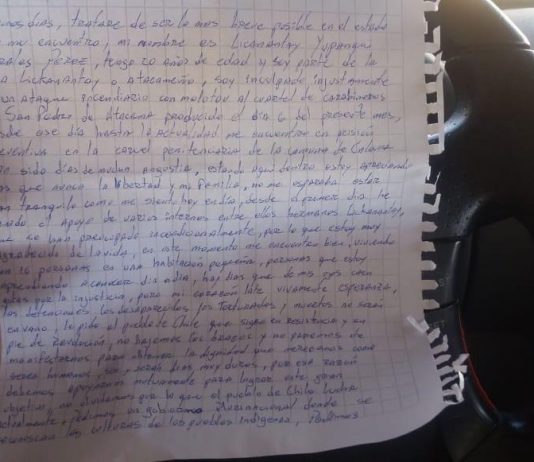 días, tratare de ser lo mas breve posible en el estado
me encuentro, mi nombre es Licanantay Yupanqui
Perez, tengo 20 años de edad y soy parte de la
Lickanantay o Atacameño, soy inculpado injustamente
un ataque incendiario con molotov al cuartel de carabineros
San Pedro de Atacama producido el dia 6 del presente mes,
ese dia hasta la actualidad me encuentro en prisión
en la carcel penitenciaria de la comuna de Calama
sido días de mucha angustia, estando aqui dentro estoy apreciando
que nunca la libertad y mi familia, no me esperaba estar
tranquilo como me siento hoy en dia, desde el primer dia he
el apoyo de varios internos entre ellos hermanos Lickanantay,
se han preocupado incondicionalmente, por lo que estoy muy
agradecido de la vida, en este momento me encuentro bien, viviendo
16 personas en una habitación pequeña, personas que estoy
conocer dia a dia, hay dias que de mis ojos caen
por la injusticia, pero mi corazón late vivamente esperanza,
las detenciones, los desaparecidos, los torturados y muertos no serán
en vano, le pido al pueblo de Chile que sigan en resistencia y en
pie de Revolución, no bajemos los brazos y no paremos de
manifestarnos para obtener la dignidad que merecemos como
seres humanos, son y serán dias muy duros, por esa razón
debemos apoyarnos mutuamente para lograr este gran
objetivo, no olvidemos por lo que el pueblo de Chile lucha
actualmente, pedimos un gobierno Plurinacional donde se
las culturas de los pueblos indígenas, Pedimos